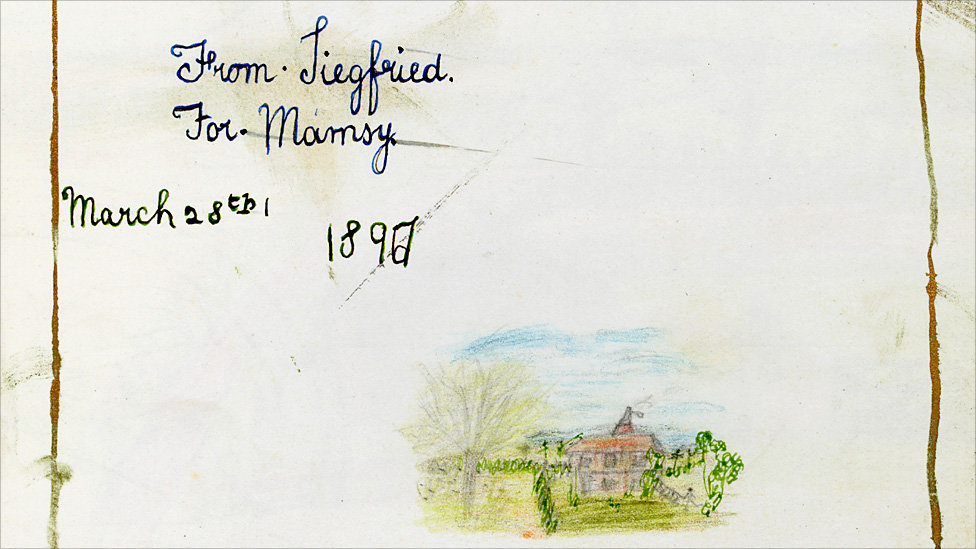 From. Siegfried.
For. Mamsy.
March 28th
1897